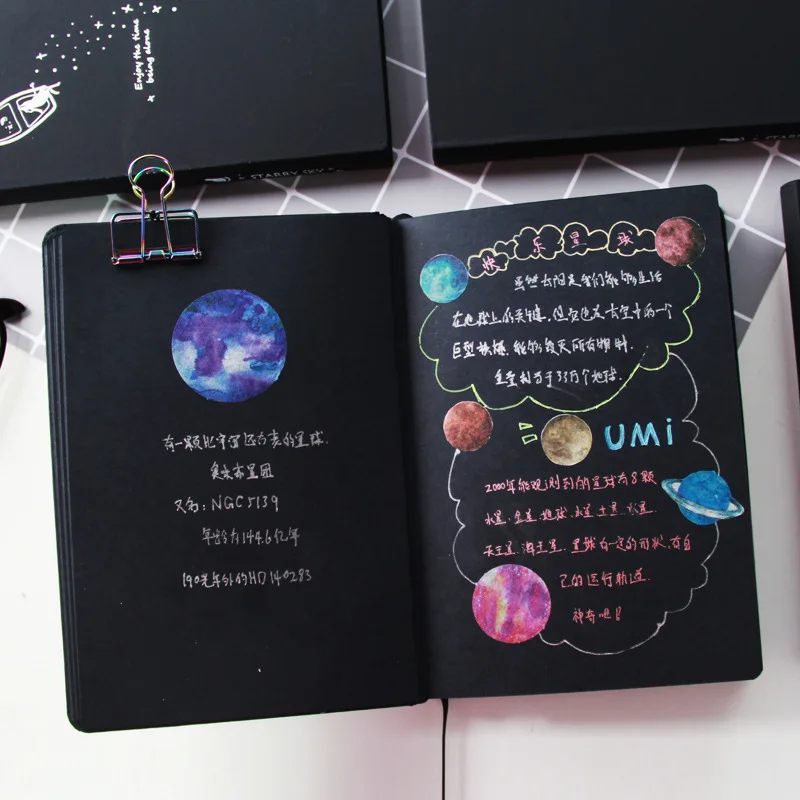 Enjoy the time
being alone
STARRY SKY
有一颗比宇宙还古老的星球.
又名: NGC5139
年龄为144.6亿年
190光年外的HD 140283
快乐星球
虽然太阳是我们能够生活
在地球上的关键, 但它也是太空中的一个
巨型 能够 所有物
质量相当于33万个地球.
UMi
2000年能观测到的星球有8颗
水星. 金星. 地球. 木星 土星. 火星.
天王星. 海王星. 星球有一定的形状, 有自
己的运行轨道.
神奇吧!!